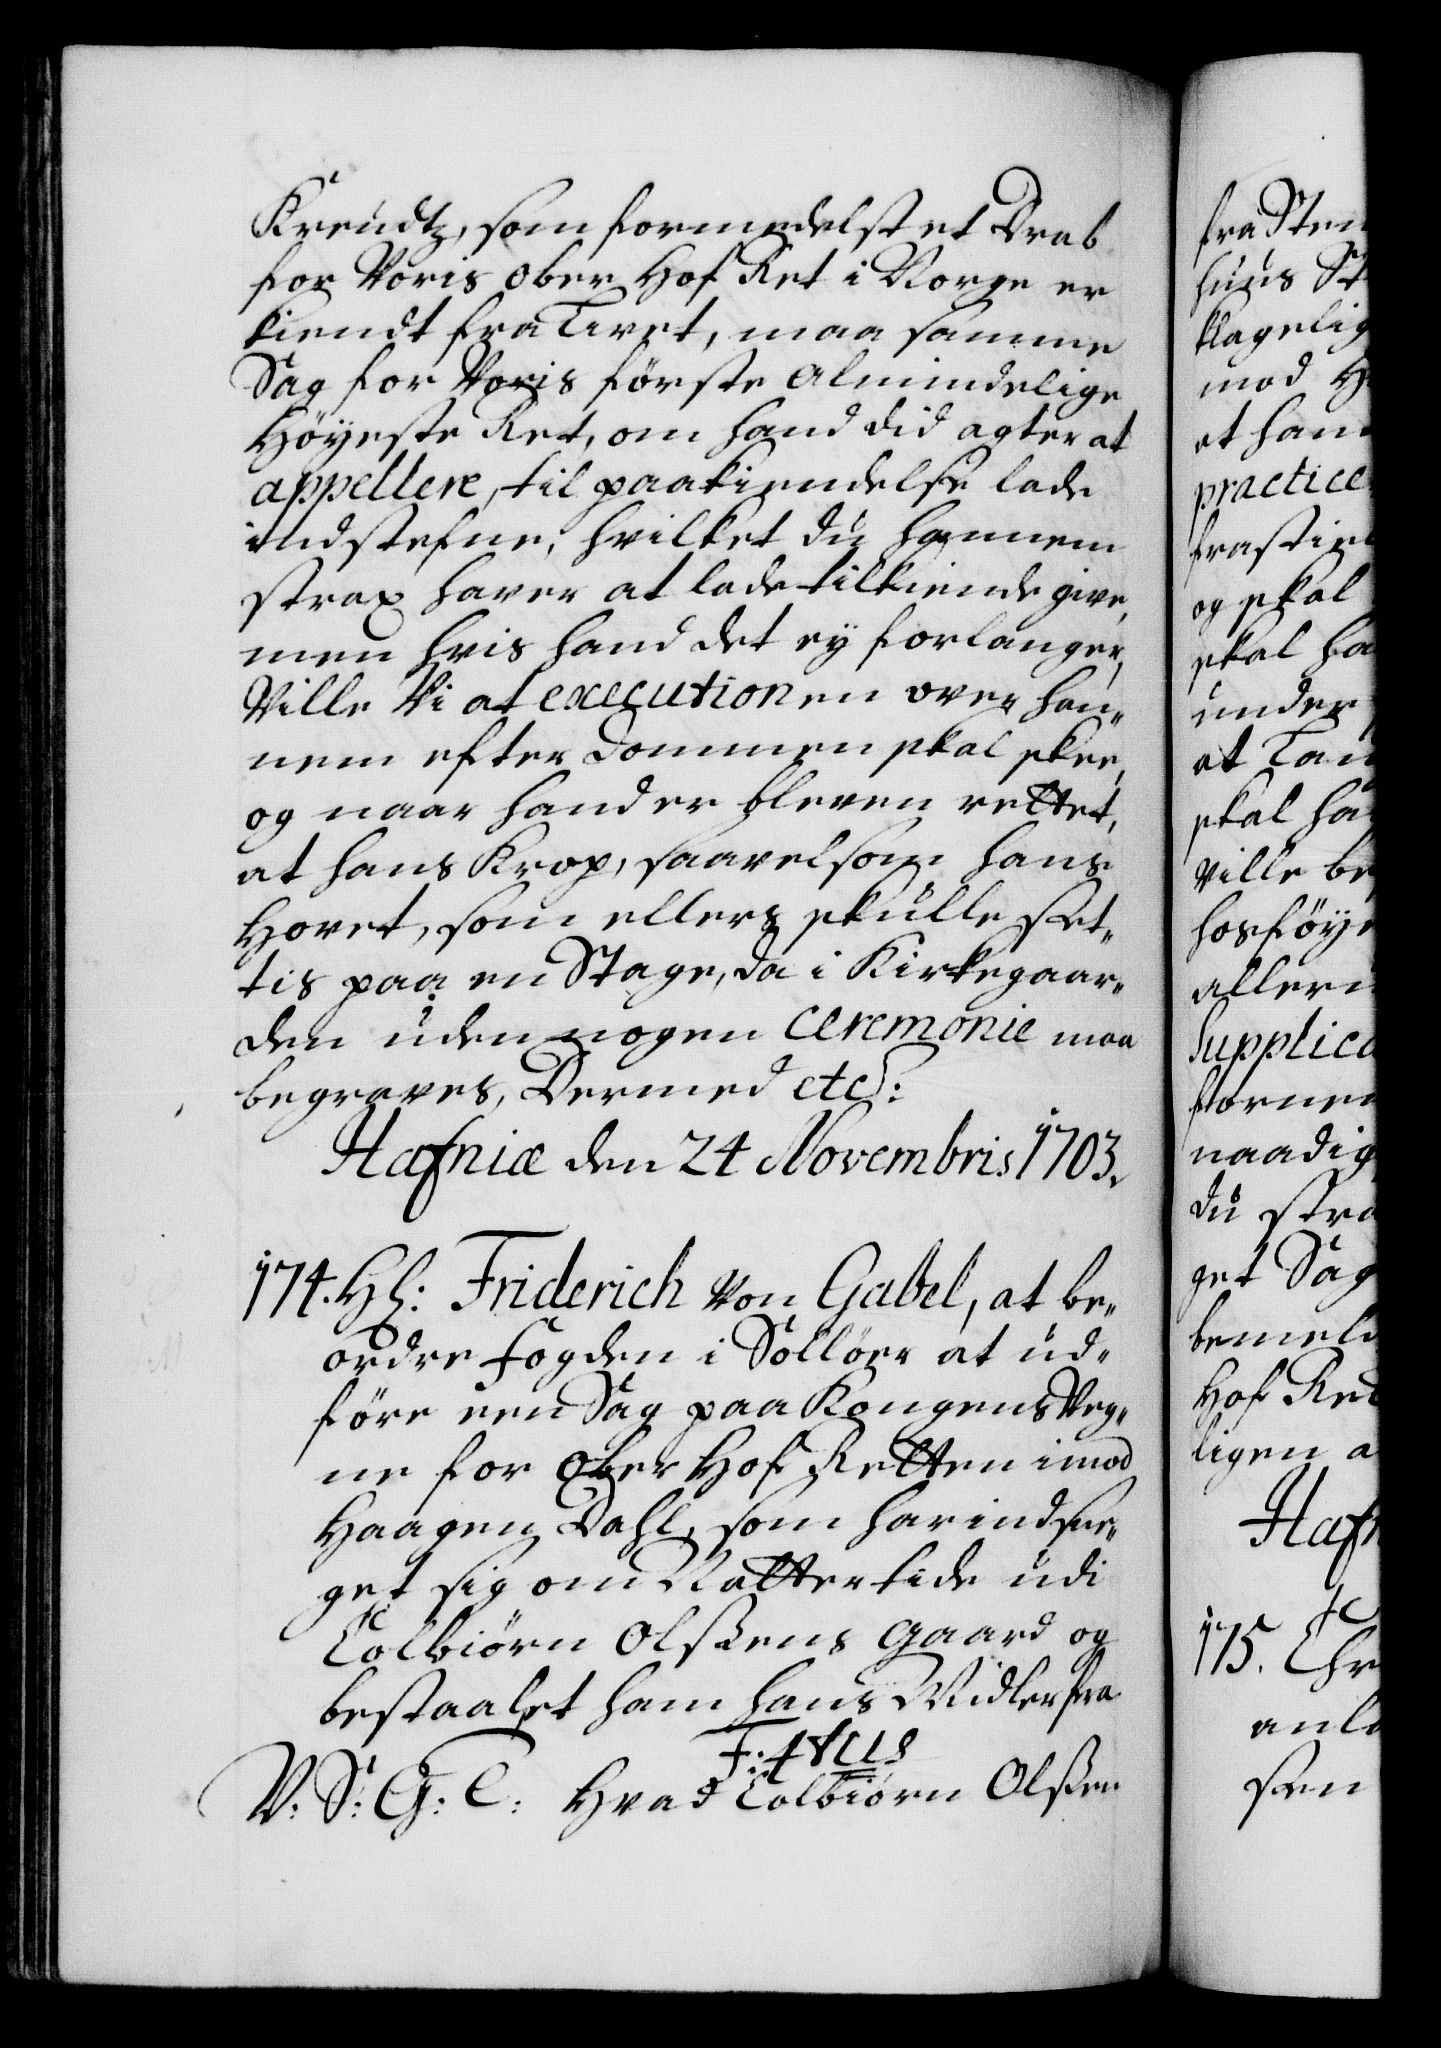 Kreudtz, som formedelst et Drab
for Voris Ober Hof Ret i Norge er
kiendt fra Livet, maa samme
Sag for Voris förste Almindelige
Höyeste Ret, om hand did agter at
appellere, til paakiendelse lade
indstefne, hvilket du hannem
strax haver at lade tilkiende give,
men hvis hand det ey forlanger,
Ville Vi at executionen over han„
nem efter Dommen skal skee,
og naar hand er bleven rettet,
at hans Krop, saavelsom hans
Hovet, som ellers skulle set„
tis paa en Stage, da i Kirkegaar„
den uden nogen Ceremonie maa
begraves, Dermed etc:
Hafniæ den 24 Novembris 1703.
174. Hl: Friderich von Gabel, at be„
ordre fogden i Sollöer at ud„
före een Sag paa Kongens Veg„
ne for Ober Hof Retten imod
Haagen Dahl, som har indsne„
get sig om Natter tide udi
Tolbiörn Olsens Gaard og
bestaalet ham hans Midler fra.
F: 4tus
V: S: G: T: Hvad Tolbiörn Olsen
fra Sten
huus St
klagelig
mod H
at ham
practice
frastiel
og skal
skal ha
under
at Tan
skal ha
Ville be
hosföye
allern
Supplica
fornem
naadig
du stra
get Sag
bemeld
Hof Ret
ligen a
Hafn
175. Chr
anla
sen